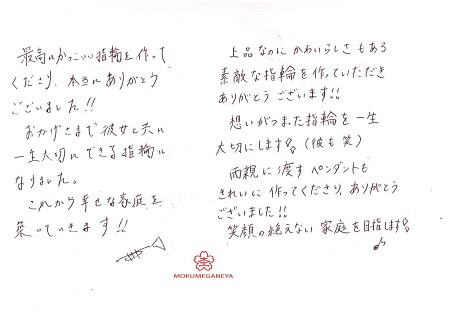 最高にかっこいい指輪を作って
くださり、本当にありがとう
ございました!!
おかげさまで彼女と共に
一生大切にできる指輪に
なりました。
これから幸せな家庭を
築いていきます!!
上品なのにかわいらしさもある
素敵な指輪を作っていただき
ありがとうございます!!
想いがつまった指輪を一生
大切にします!!(彼も笑)
両親に渡すペンダントも
きれいに作ってくださり、ありがとう
ございました!!
笑顔の絶えない家庭を目指します!!
MOKUMEGANEYA